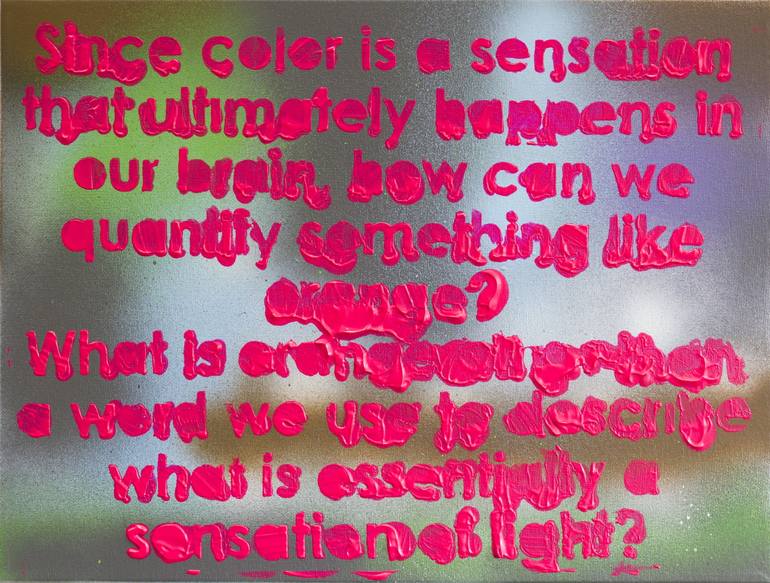 Since color is a sensation
that ultimately happens in
our brain, how can we
quantify something like
orange?
What is orange other than
a word we use to describe
what is essentially a
sensation of light?